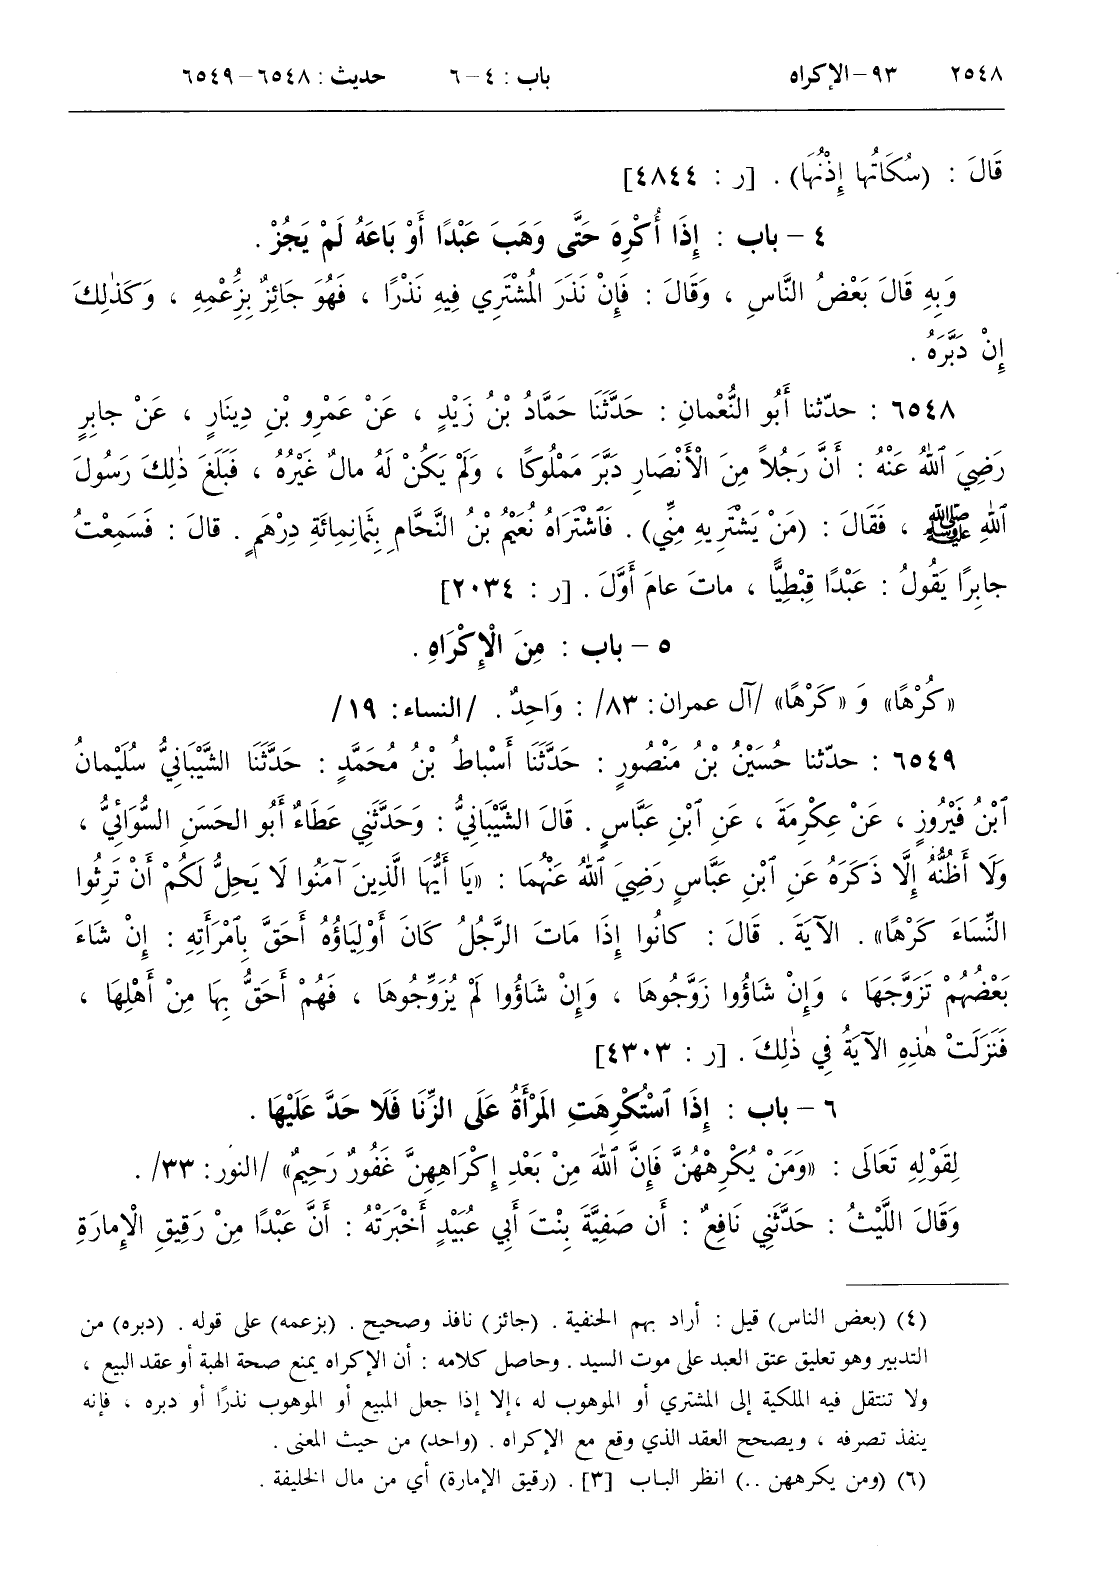 ٢٥٤٨ ٩٣-الإكراه باب : ٤-٦ حديث : ٦٥٤٨-٦٥٤٩
قَالَ : (سُكَاتُها إِذْنُهَا) . [ر : ٤٨٤٤]
٤ - باب : إِذَا أُكْرِهَ حَتَّى وَهَبَ عَبْدًا أَوْ بَاعَهُ لَمْ يَجُزْ .
وَبِهِ قَالَ بَعْضُ النَّاسِ ، وَقَالَ : فَإِنْ نَذَرَ المُشْتَرِي فِيهِ نَذْرًا ، فَهُوَ جَائِزٌ بِزَُِعْمِهِ ، وَكَذٰلِكَ
إِنْ دَبَّرَهُ .
٦٥٤٨ : حدّثنا أَبُو النُّعْمانِ : حَدَّثَنَا حَمَّادُ بْنُ زَيْدٍ ، عَنْ عَمْرِو بْنِ دِينَارٍ ، عَنْ جابِرٍ
رَضِيَ ٱللهُ عَنْهُ : أَنَّ رَجُلاً مِنَ الْأَنْصَارِ دَبَّرَ مَمْلُوكًا ، وَلَمْ يَكُنْ لَهُ مالٌ غَيْرُهُ ، فَبَلَغَ ذٰلِكَ رَسُولَ
ٱللهِ ﷺ ، فَقَالَ : (مَنْ يَشْتَرِيهِ مِنِّي) . فَٱشْتَرَاهُ نُعَيْمُ بْنُ النَّحَّامِ بِثَمانِمِائَةِ دِرْهَمٍ . قالَ : فَسَمِعْتُ
جابِرًا يَقُولُ : عَبْدًا قِبْطِيًّا ، ماتَ عامَ أَوَّلَ . [ر : ٢٠٣٤]
٥ - باب : مِنَ الْإِكْرَاهِ .
«كُرْهًا» وَ «كَرْهًا» /آل عمران: ٨٣/ : وَاحِدٌ . /النساء: ١٩/
٦٥٤٩ : حدّثنا حُسَيْنُ بْنُ مَنْصُورٍ : حَدَّثَنَا أَسْباطُ بْنُ مُحَمَّدٍ : حَدَّثَنَا الشَّيْبَانِيُّ سُلَيْمانُ
ٱبْنُ فَيْرُوزٍ ، عَنْ عِكْرِمَةَ ، عَنِ ٱبْنِ عَبَّاسٍ . قَالَ الشَّيْبَانِيُّ : وَحَدَّثَنِي عَطَاءٌ أَبُو الحَسَنِ السُّوَائِيُّ ،
وَلَا أَظُنُّهُ إِلَّا ذَكَرَهُ عَنِ ٱبْنِ عَبَّاسٍ رَضِيَ ٱللهُ عَنْهُمَا : «يَا أَيُّهَا الَّذِينَ آمَنُوا لَا يَحِلُّ لَكُمْ أَنْ تَرِثُوا
النِّسَاءَ كَرْهًا» . الآيَةَ . قَالَ : كانُوا إِذَا مَاتَ الرَّجُلُ كَانَ أَوْلِيَاؤُهُ أَحَقَّ بِٱمْرَأَتِهِ : إِنْ شَاءَ
بَعْضُهُمْ تَزَوَّجَهَا ، وَإِنْ شَاؤُوا زَوَّجُوهَا ، وَإِنْ شَاؤُوا لَمْ يُزَوِّجُوهَا ، فَهُمْ أَحَقُّ بِهَا مِنْ أَهْلِهَا ،
فَنَزَلَتْ هٰذِهِ الآيَةُ فِي ذٰلِكَ . [ر : ٤٣٠٣]
٦ - باب : إِذَا ٱسْتُكْرِهَتِ المَرْأَةُ عَلَى الزِّنَا فَلَا حَدَّ عَلَيْهَا .
لِقَوْلِهِ تَعَالَى : «وَمَنْ يُكْرِهْهُنَّ فَإِنَّ ٱللهَ مِنْ بَعْدِ إِكْرَاهِهِنَّ غَفُورٌ رَحِيمٌ» /النور: ٣٣/ .
وَقَالَ اللَّيْثُ : حَدَّثَنِي نَافِعٌ : أَن صَفِيَّةَ بِنْتَ أَبِي عُبَيْدٍ أَخْبَرَتْهُ : أَنَّ عَبْدًا مِنْ رَقِيقِ الْإِمارَةِ
(٤) (بعض الناس) قيل : أراد بهم الحنفية . (جائز) نافذ وصحيح . (بزعمه) على قوله . (دبره) من
التدبير وهو تعليق عتق العبد على موت السيد . وحاصل كلامه : أن الإكراه يمنع صحة الهبة أو عقد البيع ،
ولا تنتقل فيه الملكية إلى المشتري أو الموهوب له ،إلا إذا جعل المبيع أو الموهوب نذرًا أو دبره ، فإنه
ينفذ تصرفه ، ويصحح العقد الذي وقع مع الإكراه . (واحد) من حيث المعنى .
(٦) (ومن يكرههن ..) انظر الباب [٣] . (رقيق الإمارة) أي من مال الخليفة .